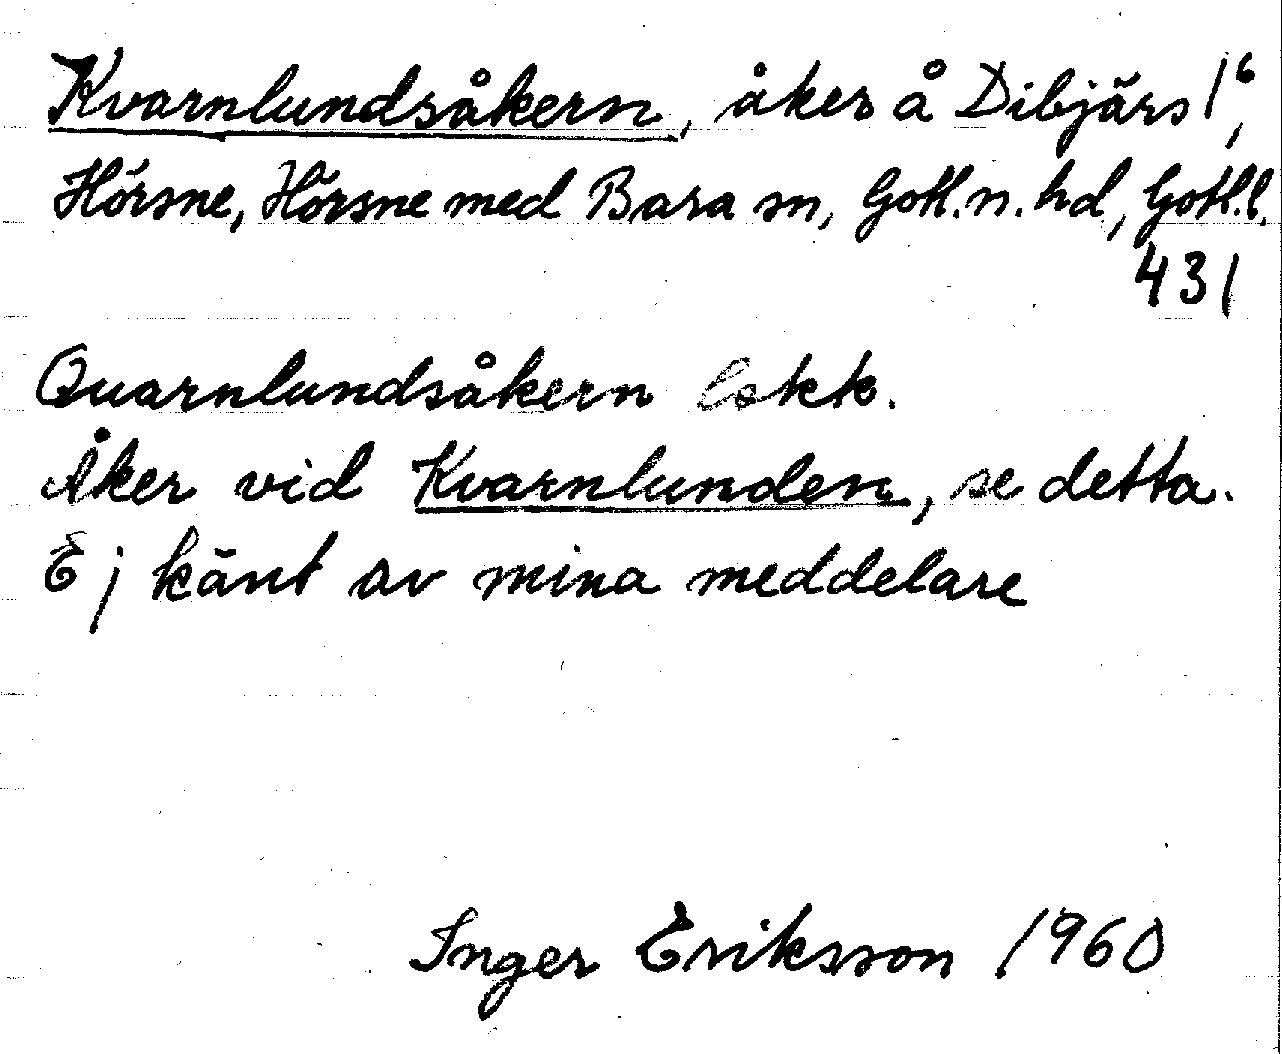 Kvarnlundsåkern, åker å Dibjärs 1⁶,
Hörsne, Hörsne med Bara sn, Gotl.n.hd, Gotl.l.
431
Quarnlundsåkern lskk.
Åker vid Kvarnlunden, se detta.
Ej känt av mina meddelare
Inger Eriksson 1960